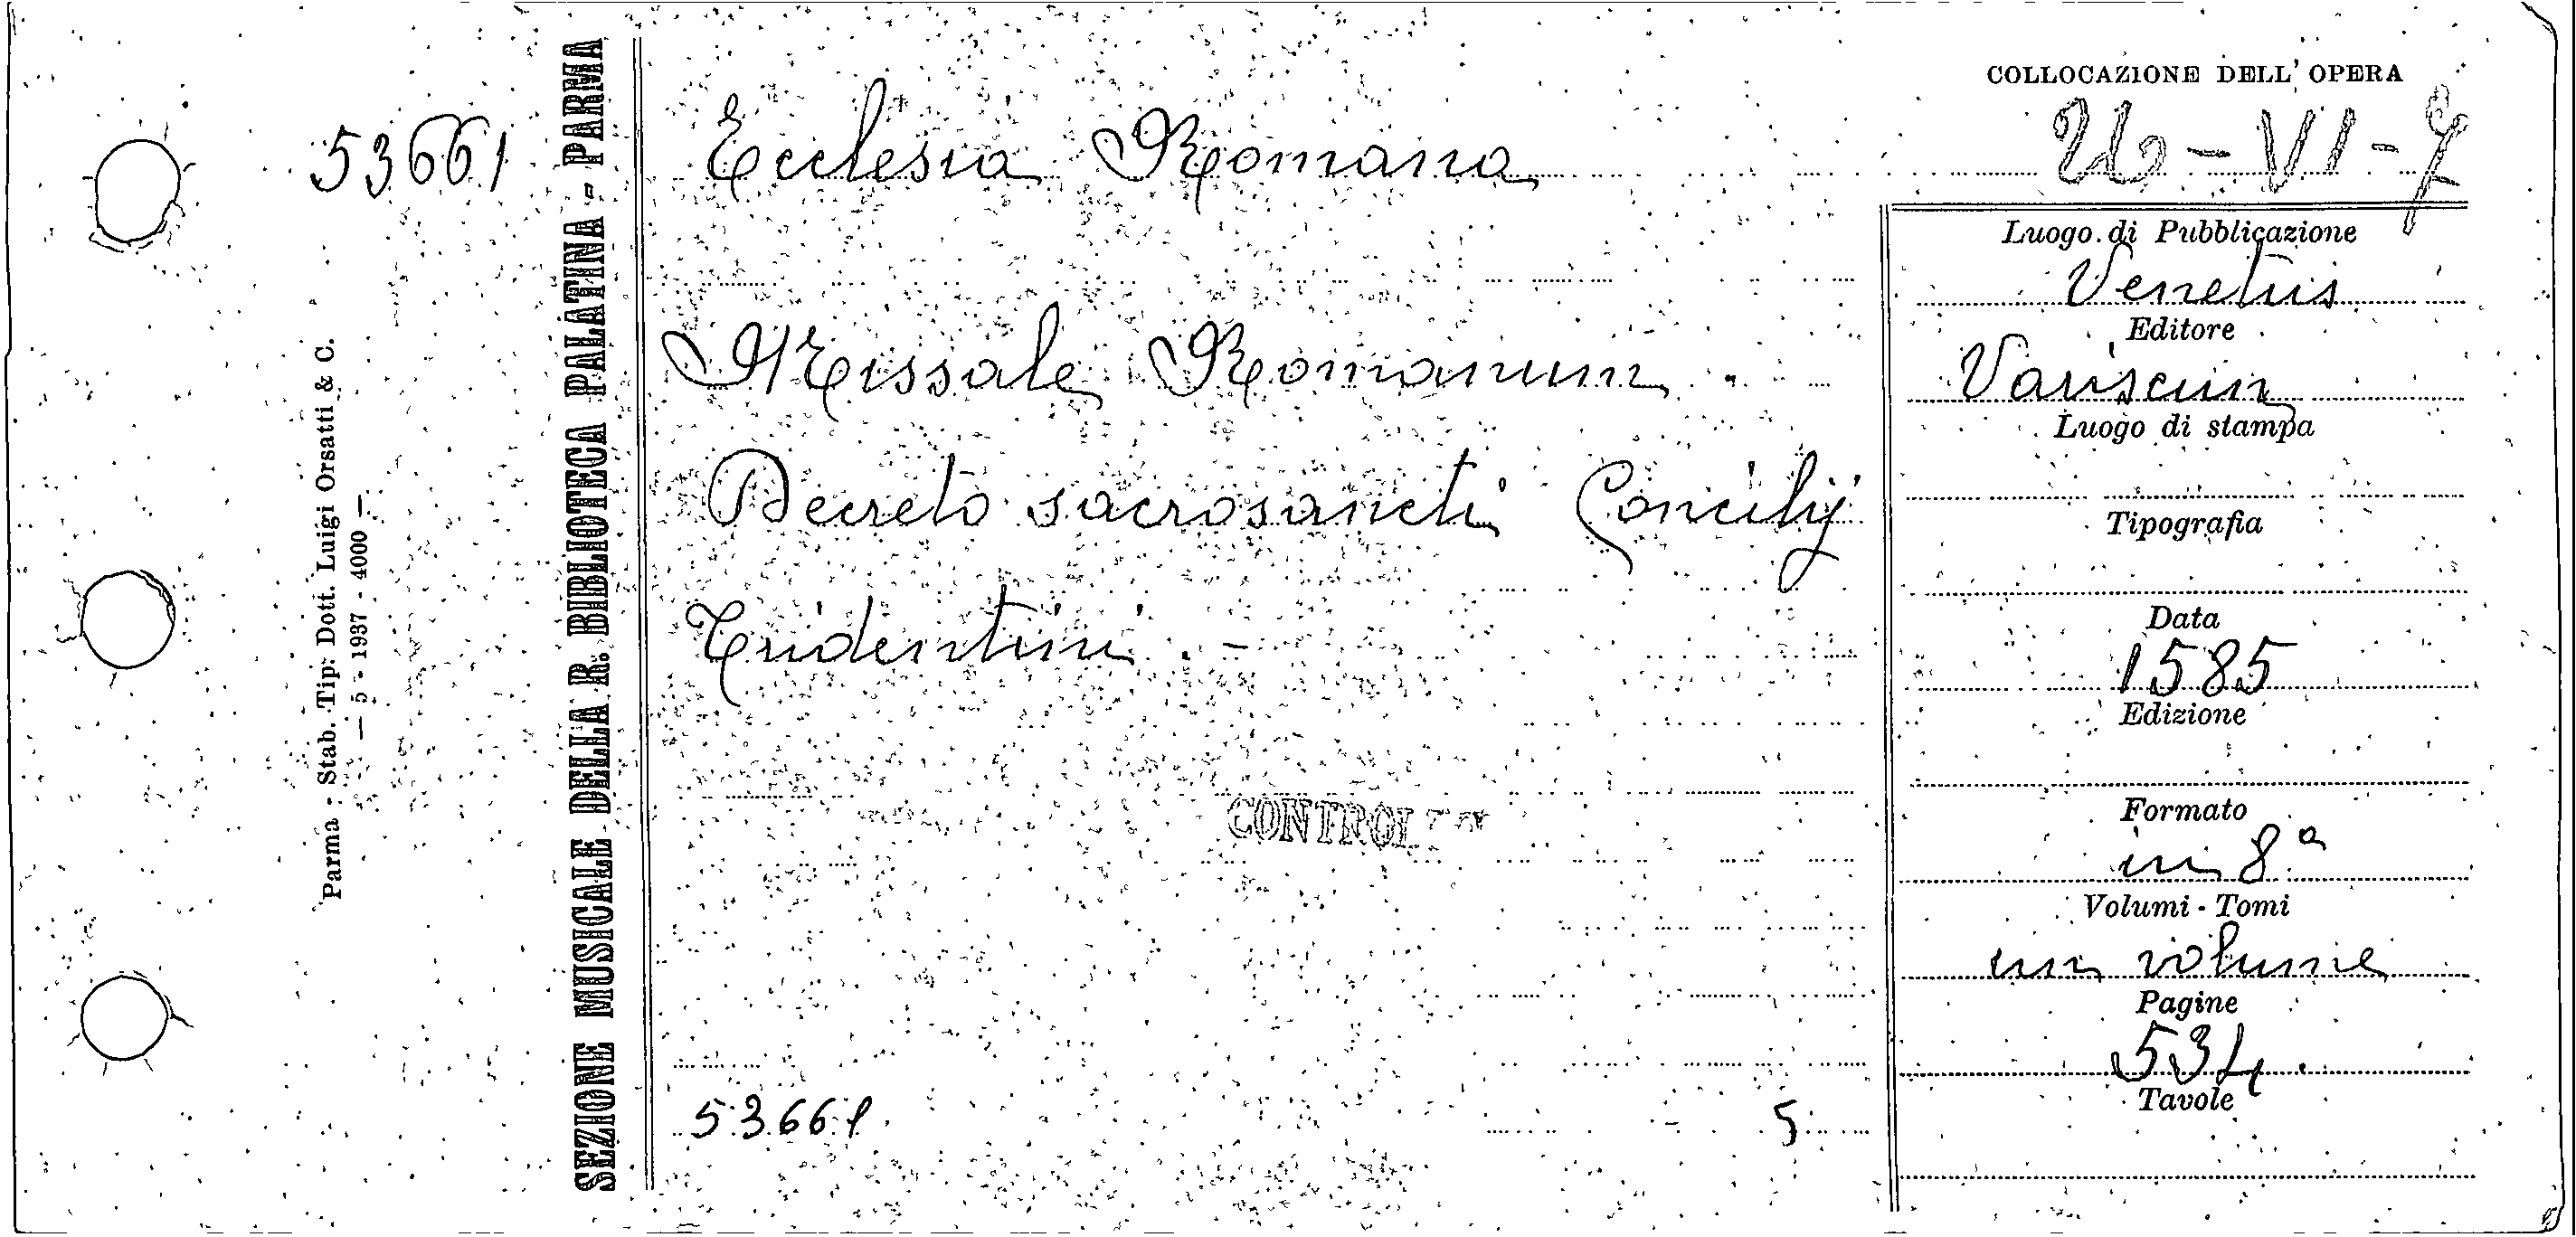 53661
Parma - Stab. Tip. Dott. Luigi Orsatti & C.
— 5 - 1937 - 4000 —
SEZIONE MUSICALE DELLA R. BIBLIOTECA PALATINA - PARMA
Ecclesia Romana
Missale Romanum.
Decreto sacrosancti Concilij
Tridentini. -
53661
5
COLLOCAZIONE DELL' OPERA
VI - 7
Luogo di Pubblicazione
Venetiis
Editore
Luogo di stampa
Tipografia
Data
1585
Edizione
Formato
in 8ª
Volumi - Tomi
un volume
Pagine
534.
Tavole